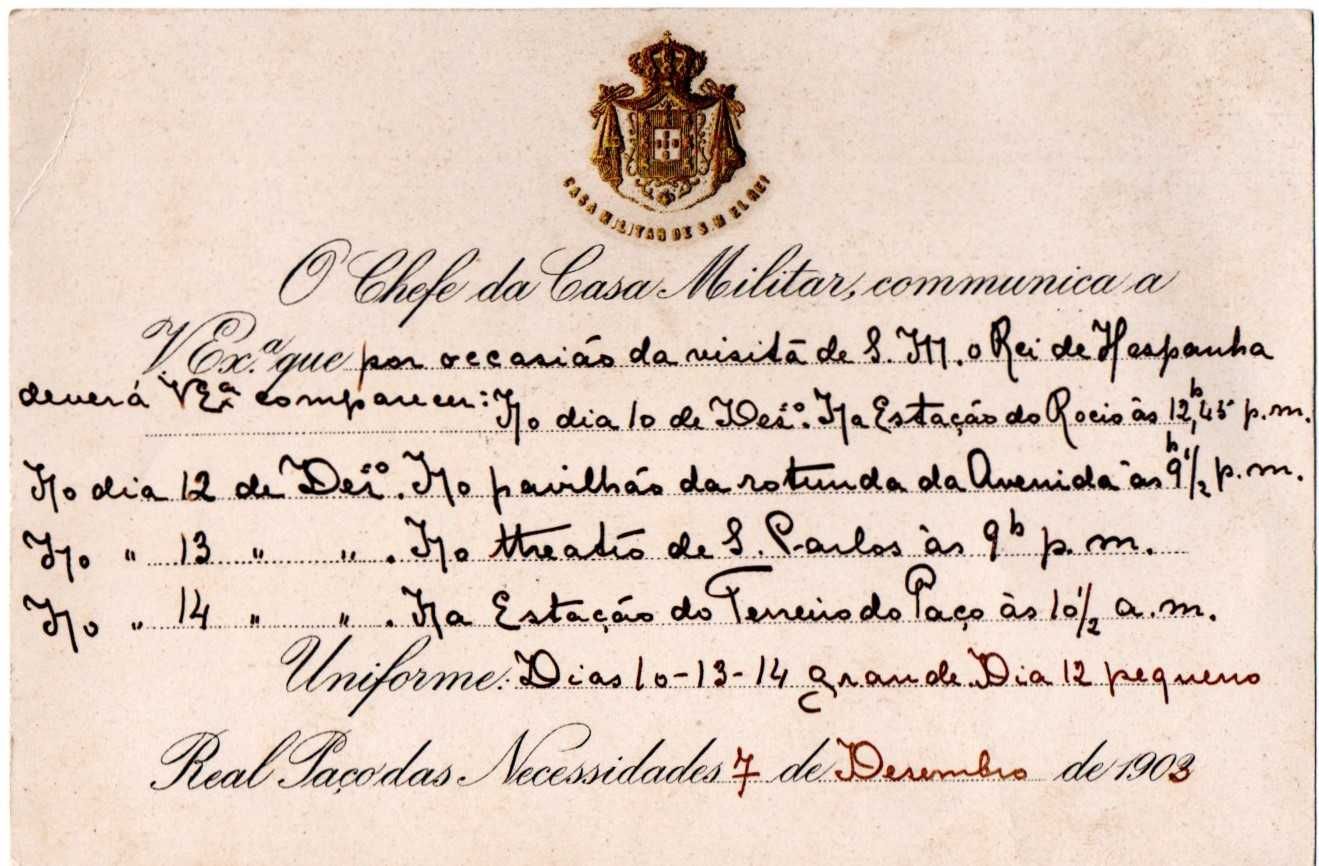 CASA MILITAR DE S. M EL REI
O Chefe da Casa Militar, communica a
V. Ex.ª que por occasião da visita de S. M. o Rei de Hespanha
deverá V Exª comparecer: No dia 10 de Dezº. Na Estação do Rocio às 12,45 p.m.
No dia 12 de Dezº. No pavilhão da rotunda da Avenida às 9h 1/2 p.m.
No " 13 " " . No theatro de S. Carlos às 9h p.m.
No " 14 " " . Na Estação do Terreiro do Paço às 10 1/2 a.m.
Uniforme: Dias 10-13-14 grande. Dia 12 pequeno
Real Paço das Necessidades 7 de Desembro de 1903